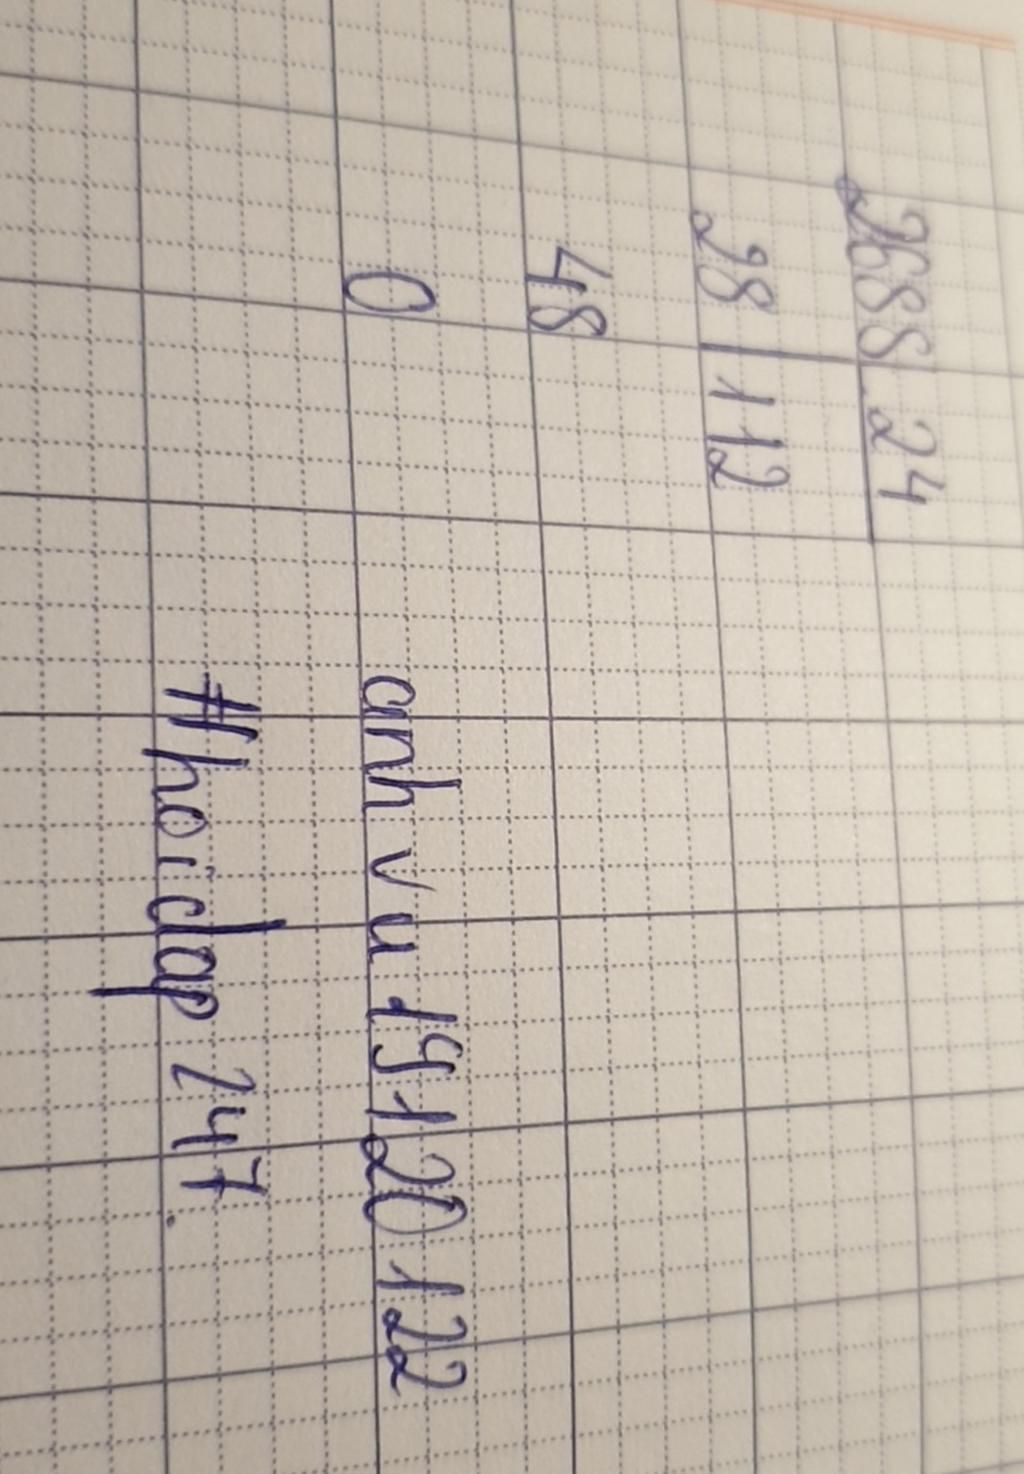 2688 24
28 112
48
0
anh vu 19120122
#hoidap247.